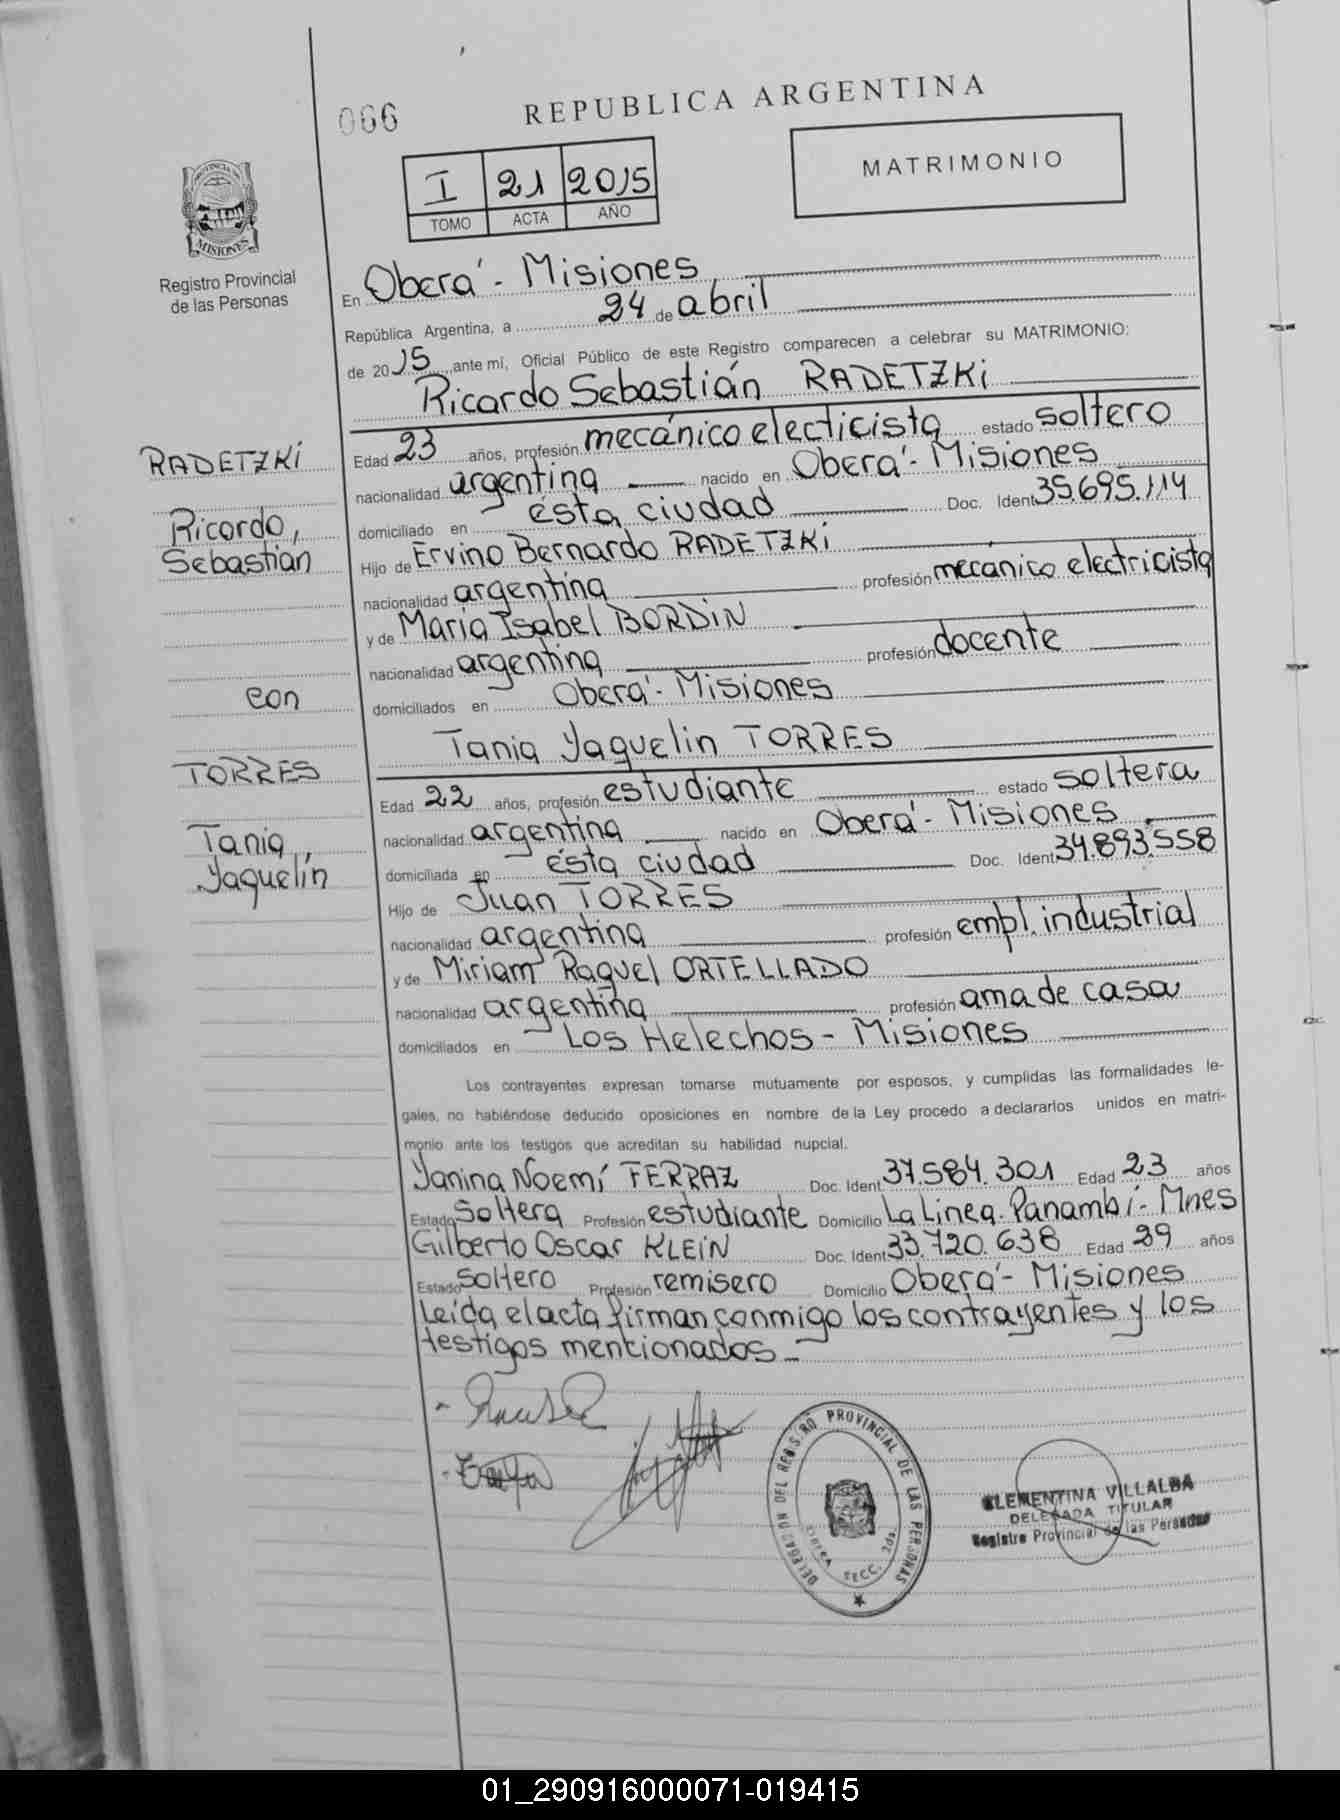 066
REPUBLICA ARGENTINA
MATRIMONIO
I 21 2015
TOMO ACTA AÑO
MISIONES
Registro Provincial
de las Personas
En Oberá - Misiones
República Argentina, a 24 de abril
de 2015 ante mí, Oficial Público de este Registro comparecen a celebrar su MATRIMONIO:
Ricardo Sebastián RADETZKi
RADETZKi
Ricardo,
Sebastián
con
TORRES
Tania,
Yaquelín
Edad 23 años, profesión mecánico electicista estado soltero
nacionalidad argentina nacido en Oberá - Misiones
domiciliado en ésta ciudad Doc. Ident 35.695.114
Hijo de Ervino Bernardo RADETZKi
nacionalidad argentina profesión mecánico electricista
y de María Isabel BORDiN
nacionalidad argentina profesión docente
domiciliados en Oberá - Misiones
Tania Yaquelin TORRES
Edad 22 años, profesión estudiante estado soltera
nacionalidad argentina nacido en Oberá - Misiones
domiciliada en ésta ciudad Doc. Ident 34.893.558
Hijo de Juan TORRES
nacionalidad argentina profesión empl. industrial
y de Miriam Raquel ORTELLADO
nacionalidad argentina profesión ama de casa
domiciliados en Los Helechos - Misiones
Los contrayentes expresan tomarse mutuamente por esposos, y cumplidas las formalidades le-
gales, no habiéndose deducido oposiciones en nombre de la Ley procedo a declararlos unidos en matri-
monio ante los testigos que acreditan su habilidad nupcial.
Yanina Noemí FERRAZ Doc. Ident 37.584.301 Edad 23 años
Estado Soltera Profesión estudiante Domicilio La Linea - Panambí - Mnes
Gilberto Oscar KLEiN Doc. Ident 33.720.638 Edad 29 años
Estado Soltero Profesión remisero Domicilio Oberá - Misiones
Leída el acta firman conmigo los contrayentes y los
testigos mencionados -
DELEGACION DEL REGISTRO PROVINCIAL DE LAS PERSONAS
OBERA SECC. 2da.
CLEMENTINA VILLALBA
DELEGADA TITULAR
Registro Provincial de las Personas
01_290916000071-019415